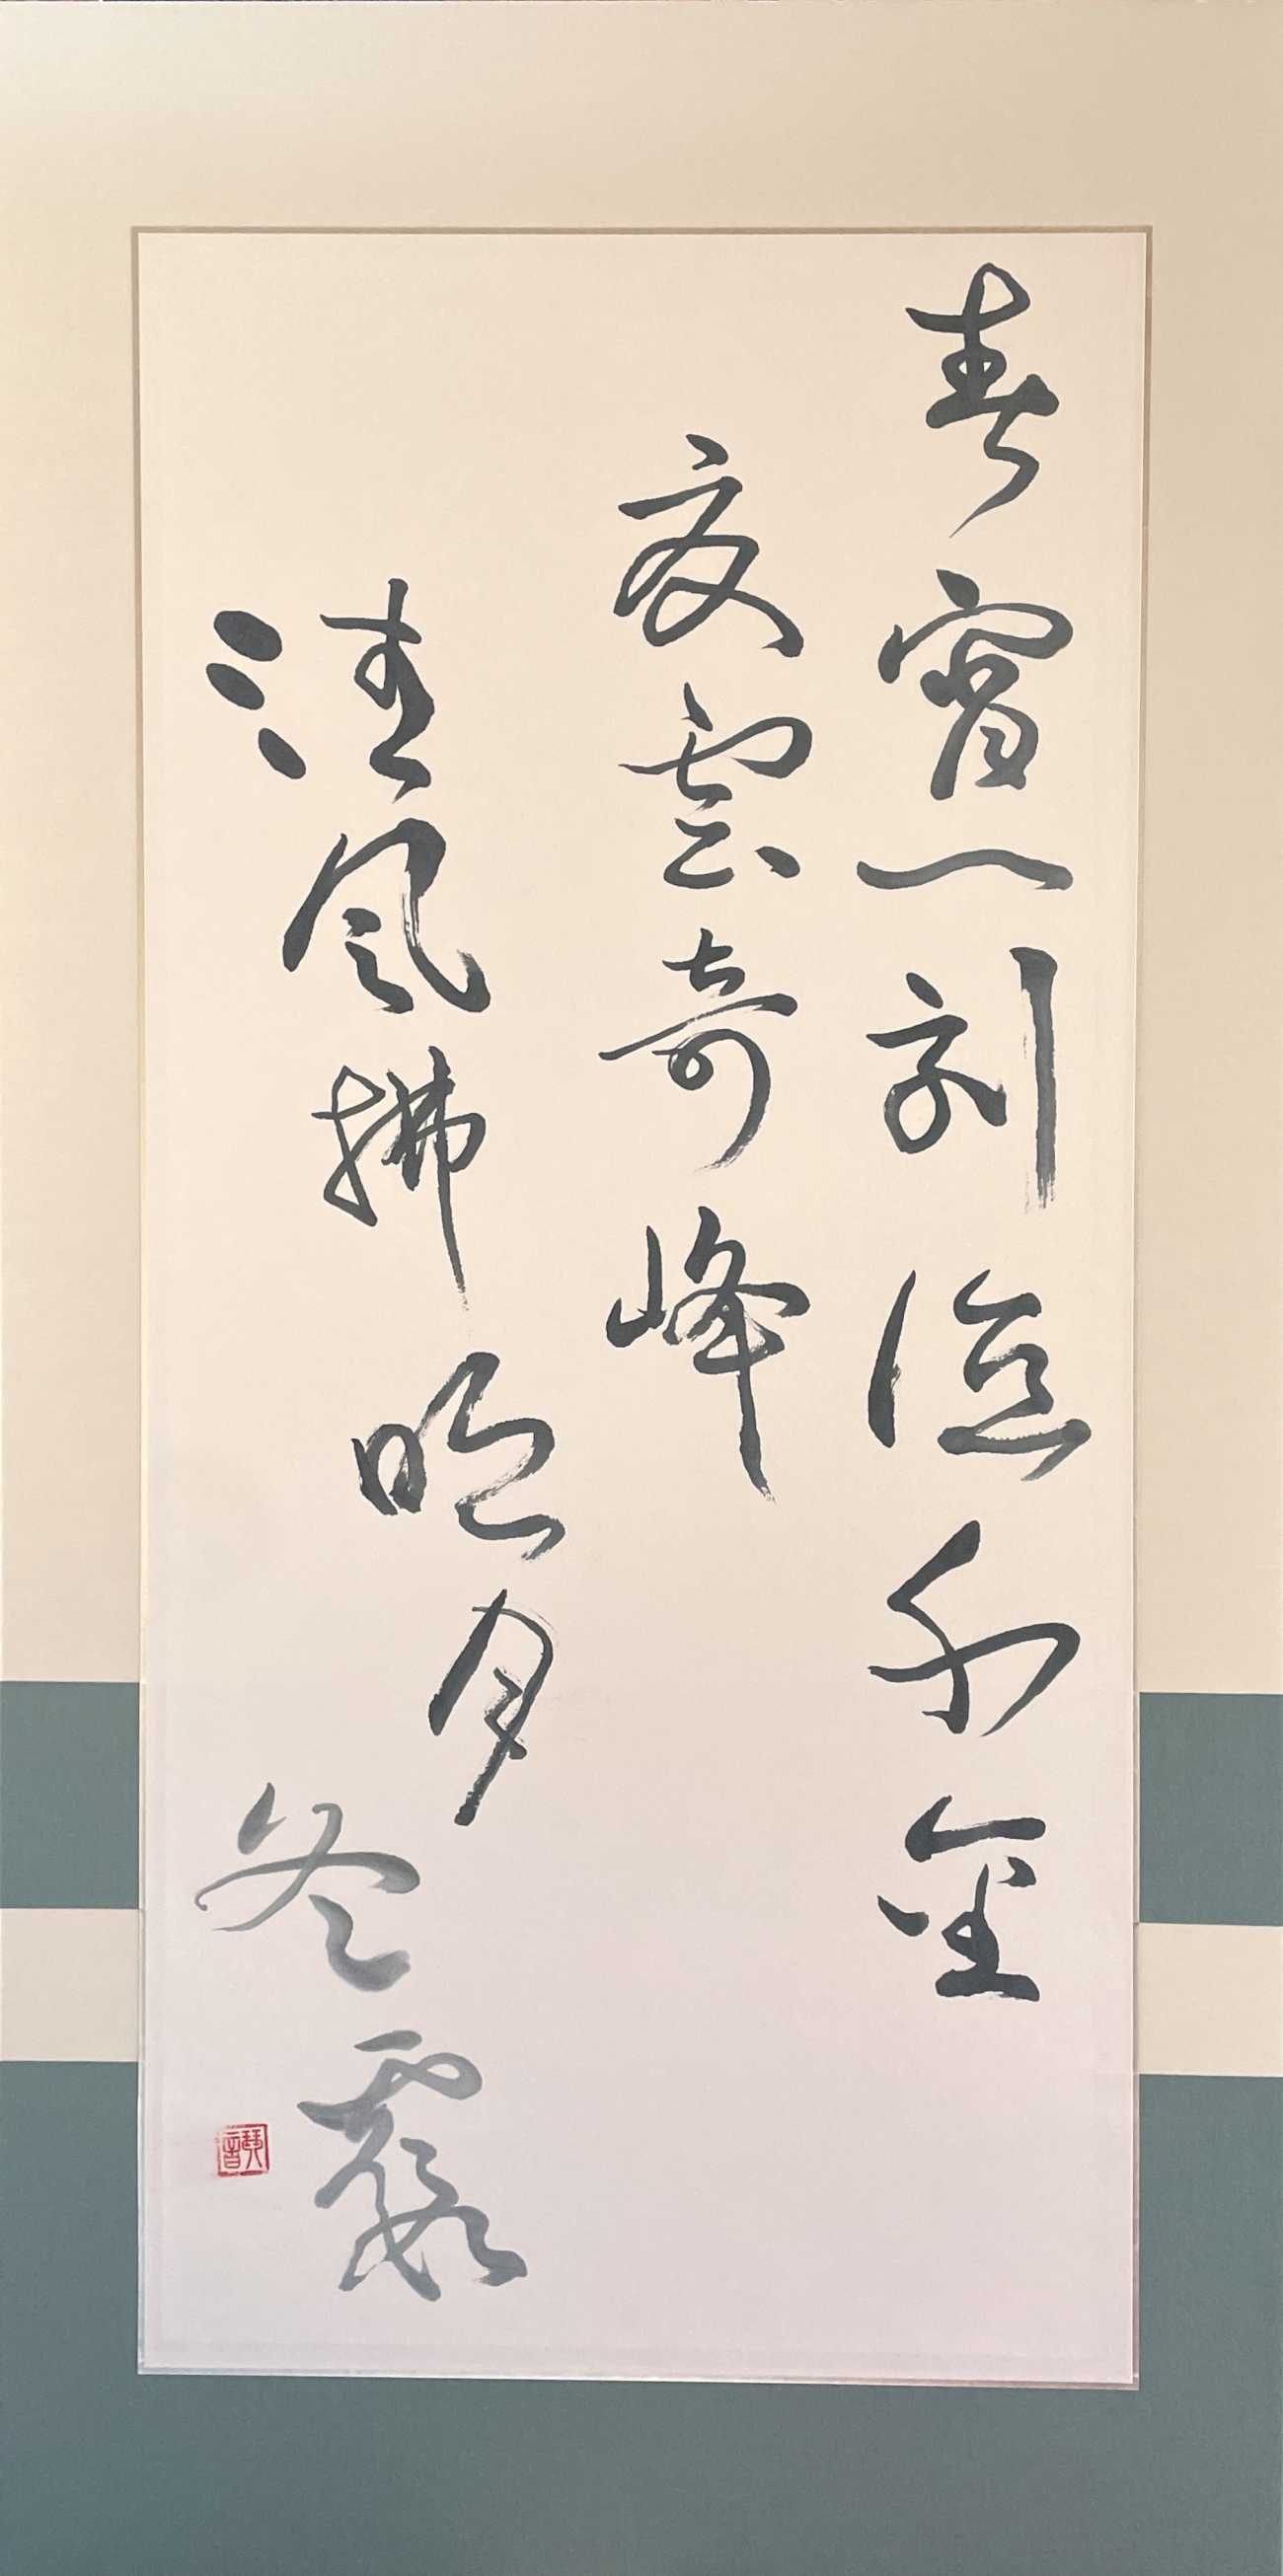 春宵一刻値千金
夏雲奇峰
清風拂明月
冬霞